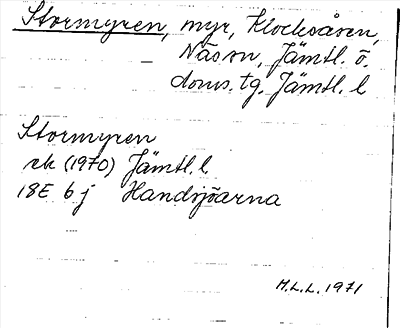 Stormyren, myr, Klockåsen,
Näs sn, Jämtl. ö.
doms. tg, Jämtl. l
Stormyren
rk (1970) Jämtl. l
18E 6 j Handsjöarna
M.L.L. 1971